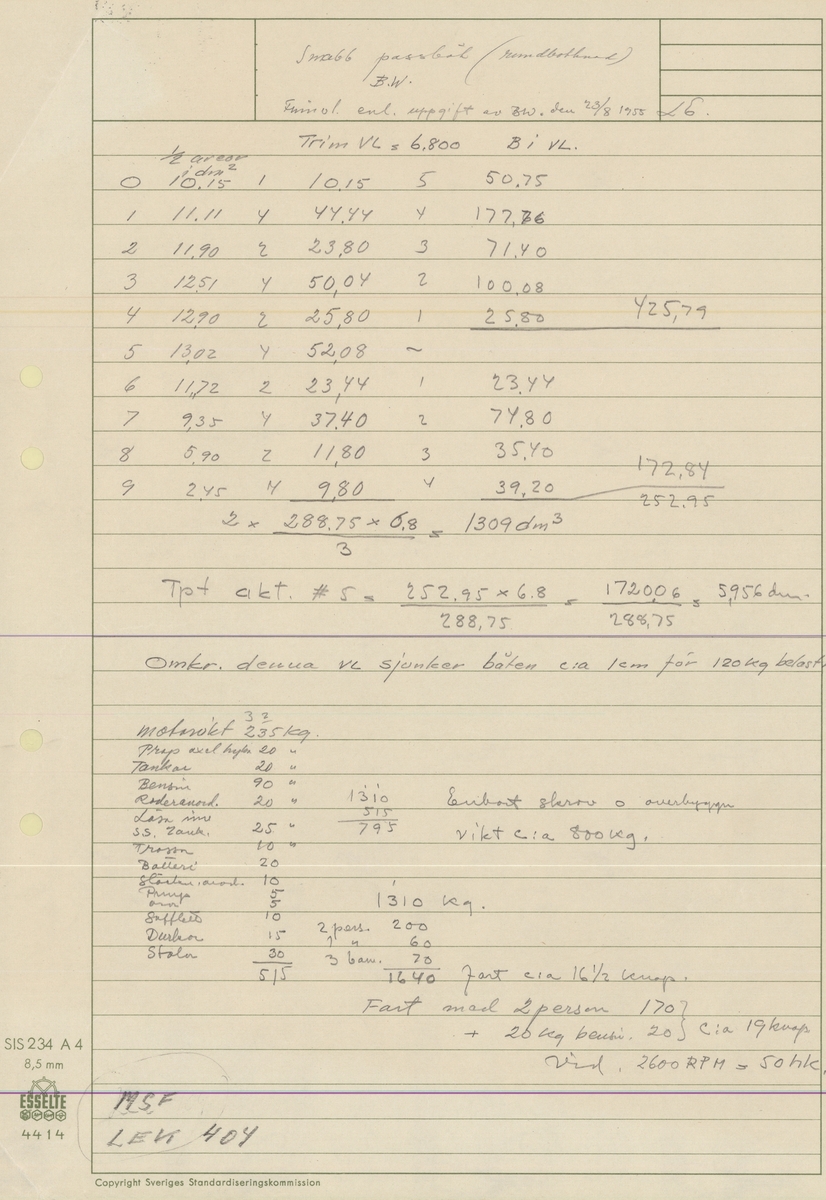 Snabb passbåt (rundbottnad)
B.W.
enl. uppgift av BW. den 23/8 1955 LE.
Trim VL = 6,800 B i VL.
1/2 areor
i dm²
0 10.15 1 10,15 5 50.75
1 11.11 4 44,44 4 177,76
2 11,90 2 23,80 3 71,40
3 12,51 4 50,04 2 100,08
4 12,90 2 25,80 1 25,80 425,79
5 13,02 4 52,08 ~
6 11,72 2 23,44 1 23,44
7 9,35 4 37.40 2 74,80
8 5,90 2 11,80 3 35,40
172,84
9 2,45 4 9,80 4 39,20
252.95
2 × 288.75 × 6,8 = 1309 dm³
3
Tpt akt. # 5 = 252.95 × 6.8 = 172006 = 5,956 dm.
288,75. 288,75
Omkr. denna VL sjunker båten c:a 1cm för 120 kg belast
32
motorvikt 235 kg.
Prop axel hylsa 20 "
Tankar 20 "
Bensin 90 "
Roderanord. 20 " 1310 Enbart skrov o överbyggn
515
Lösa inv
S.S. Tank. 25 " 795 vikt c:a 800 kg.
Trossar 10 "
Batteri 20
10
Pump 5
åror 5 1310 kg.
Sufflett 10
2 pers. 200
Durkar 15 1 " 60
Stolar 30 3 barn. 70
515 1640 fart c:a 16 1/2 knop.
Fart med 2 person 170}
+ 20 kg bensin. 20} c:a 19 knop
Vid. 2600 RPM = 50 hk.
SIS 234 A 4
8,5 mm
ESSELTE
4414
MSF
LEK 404
Copyright Sveriges Standardiseringskommission